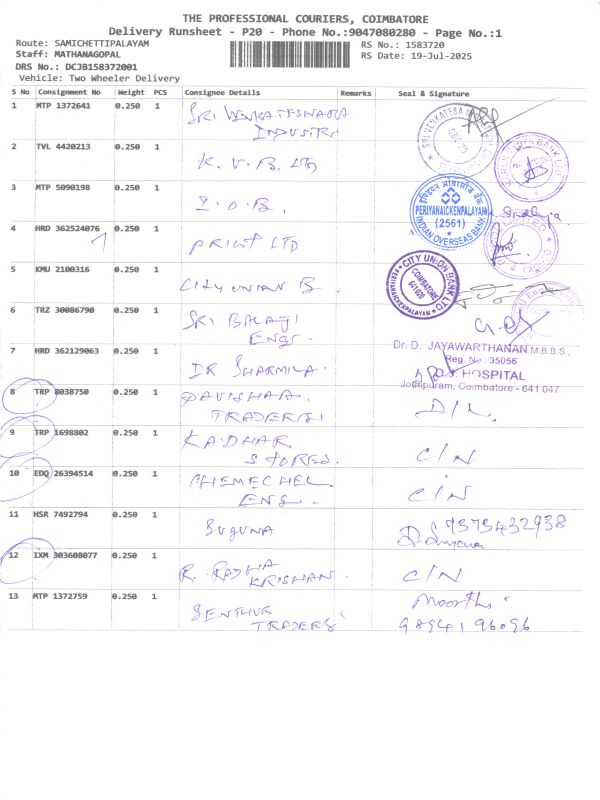 THE PROFESSIONAL COURIERS, COIMBATORE
Delivery Runsheet - P20 - Phone No.:9047080280 - Page No.:1
Route: SAMICHETTIPALAYAM
RS No.: 1583720
Staff: MATHANAGOPAL
RS Date: 19-Jul-2025
DRS No.: DCJB158372001
Vehicle: Two Wheeler Delivery
S No Consignment No Weight PCS Consignee Details Remarks Seal & Signature
1 MTP 1372641 0.250 1 SRI VENKATESWARA
INDUSTRI
2 TVL 4420213 0.250 1 K.V.B. LTD
3 MTP 5090198 0.250 1 I.O.B.
இந்தியன் ஓவர்சீஸ்
PERIYANAICKENPALAYAM
(2561)
INDIAN OVERSEAS BANK
4 HRD 362524076 0.250 1 PRICOL LTD
5 KMU 2100316 0.250 1 CITY UNION B.
CITY UNION BANK LTD
COIMBATORE
641020
PERIYANAICKENPALAYAM
6 TRZ 30086790 0.250 1 SRI BALAJI
ENGS
7 HRD 362129063 0.250 1 DR SHARMILA.
Dr. D. JAYAWARTHANAN M.B.B.S.,
Reg. No: 35056
HOSPITAL
Jothipuram, Coimbatore - 641 047
8 TRP 8038750 0.250 1 PAVISHAR
TRADERS
D/L.
9 TRP 1698802 0.250 1 KADHAR
STORES.
C/N
10 EDQ 26394514 0.250 1 CHEMECHEL
ENG.
C/N
11 HSR 7492794 0.250 1 SUGUNA
7373432938
12 IXM 303608077 0.250 1 R. RADHA
KRISHNAN.
C/N
13 MTP 1372759 0.250 1 SENTHUR
TRADERS
Moorthi
9894196096